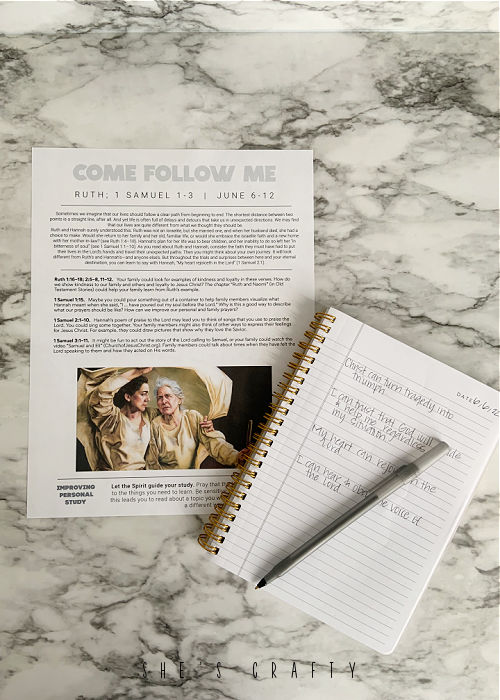 COME FOLLOW ME
RUTH; 1 SAMUEL 1-3 | JUNE 6-12
Sometimes we imagine that our lives should follow a clear path from beginning to end. The shortest distance between two
points is a straight line, after all. And yet life is often full of delays and detours that take us in unexpected directions. We may find
that our lives are quite different from what we thought they should be.
Ruth and Hannah surely understood this. Ruth was not an Israelite, but she married one, and when her husband died, she had a
choice to make. Would she return to her family and her old, familiar life, or would she embrace the Israelite faith and a new home
with her mother-in-law? (see Ruth 1:4–18). Hannah's plan for her life was to bear children, and her inability to do so left her "in
bitterness of soul" (see 1 Samuel 1:1–10). As you read about Ruth and Hannah, consider the faith they must have had to put
their lives in the Lord's hands and travel their unexpected paths. Then you might think about your own journey. It will look
different from Ruth's and Hannah's—and anyone else's. But throughout the trials and surprises between here and your eternal
destination, you can learn to say with Hannah, "My heart rejoiceth in the Lord" (1 Samuel 2:1).
Ruth 1:16–18; 2:5–8, 11–12. Your family could look for examples of kindness and loyalty in these verses. How do
we show kindness to our family and others and loyalty to Jesus Christ? The chapter "Ruth and Naomi" (in Old
Testament Stories) could help your family learn from Ruth's example.
1 Samuel 1:15. Maybe you could pour something out of a container to help family members visualize what
Hannah meant when she said, "I … have poured out my soul before the Lord." Why is this a good way to describe
what our prayers should be like? How can we improve our personal and family prayers?
1 Samuel 2:1–10. Hannah's poem of praise to the Lord may lead you to think of songs that you use to praise the
Lord. You could sing some together. Your family members may also think of other ways to express their feelings
for Jesus Christ. For example, they could draw pictures that show why they love the Savior.
1 Samuel 3:1–11. It might be fun to act out the story of the Lord calling to Samuel, or your family could watch the
video "Samuel and Eli" (ChurchofJesusChrist.org). Family members could talk about times when they have felt the
Lord speaking to them and how they acted on His words.
IMPROVING
PERSONAL
STUDY
Let the Spirit guide your study. Pray that
to the things you need to learn. Be
this leads you to read about a topic you
a different
DATE 6/6/22
Christ can turn tragedy into
triumph
I can trust that God will guide
& help me regardless
my situation
My heart can rejoice in the
Lord
I can hear & obey the voice of
the Lord
SHE'S CRAFTY